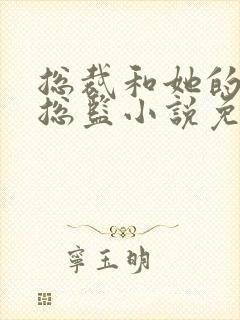 总裁和她的
总监小说免
宁玉明